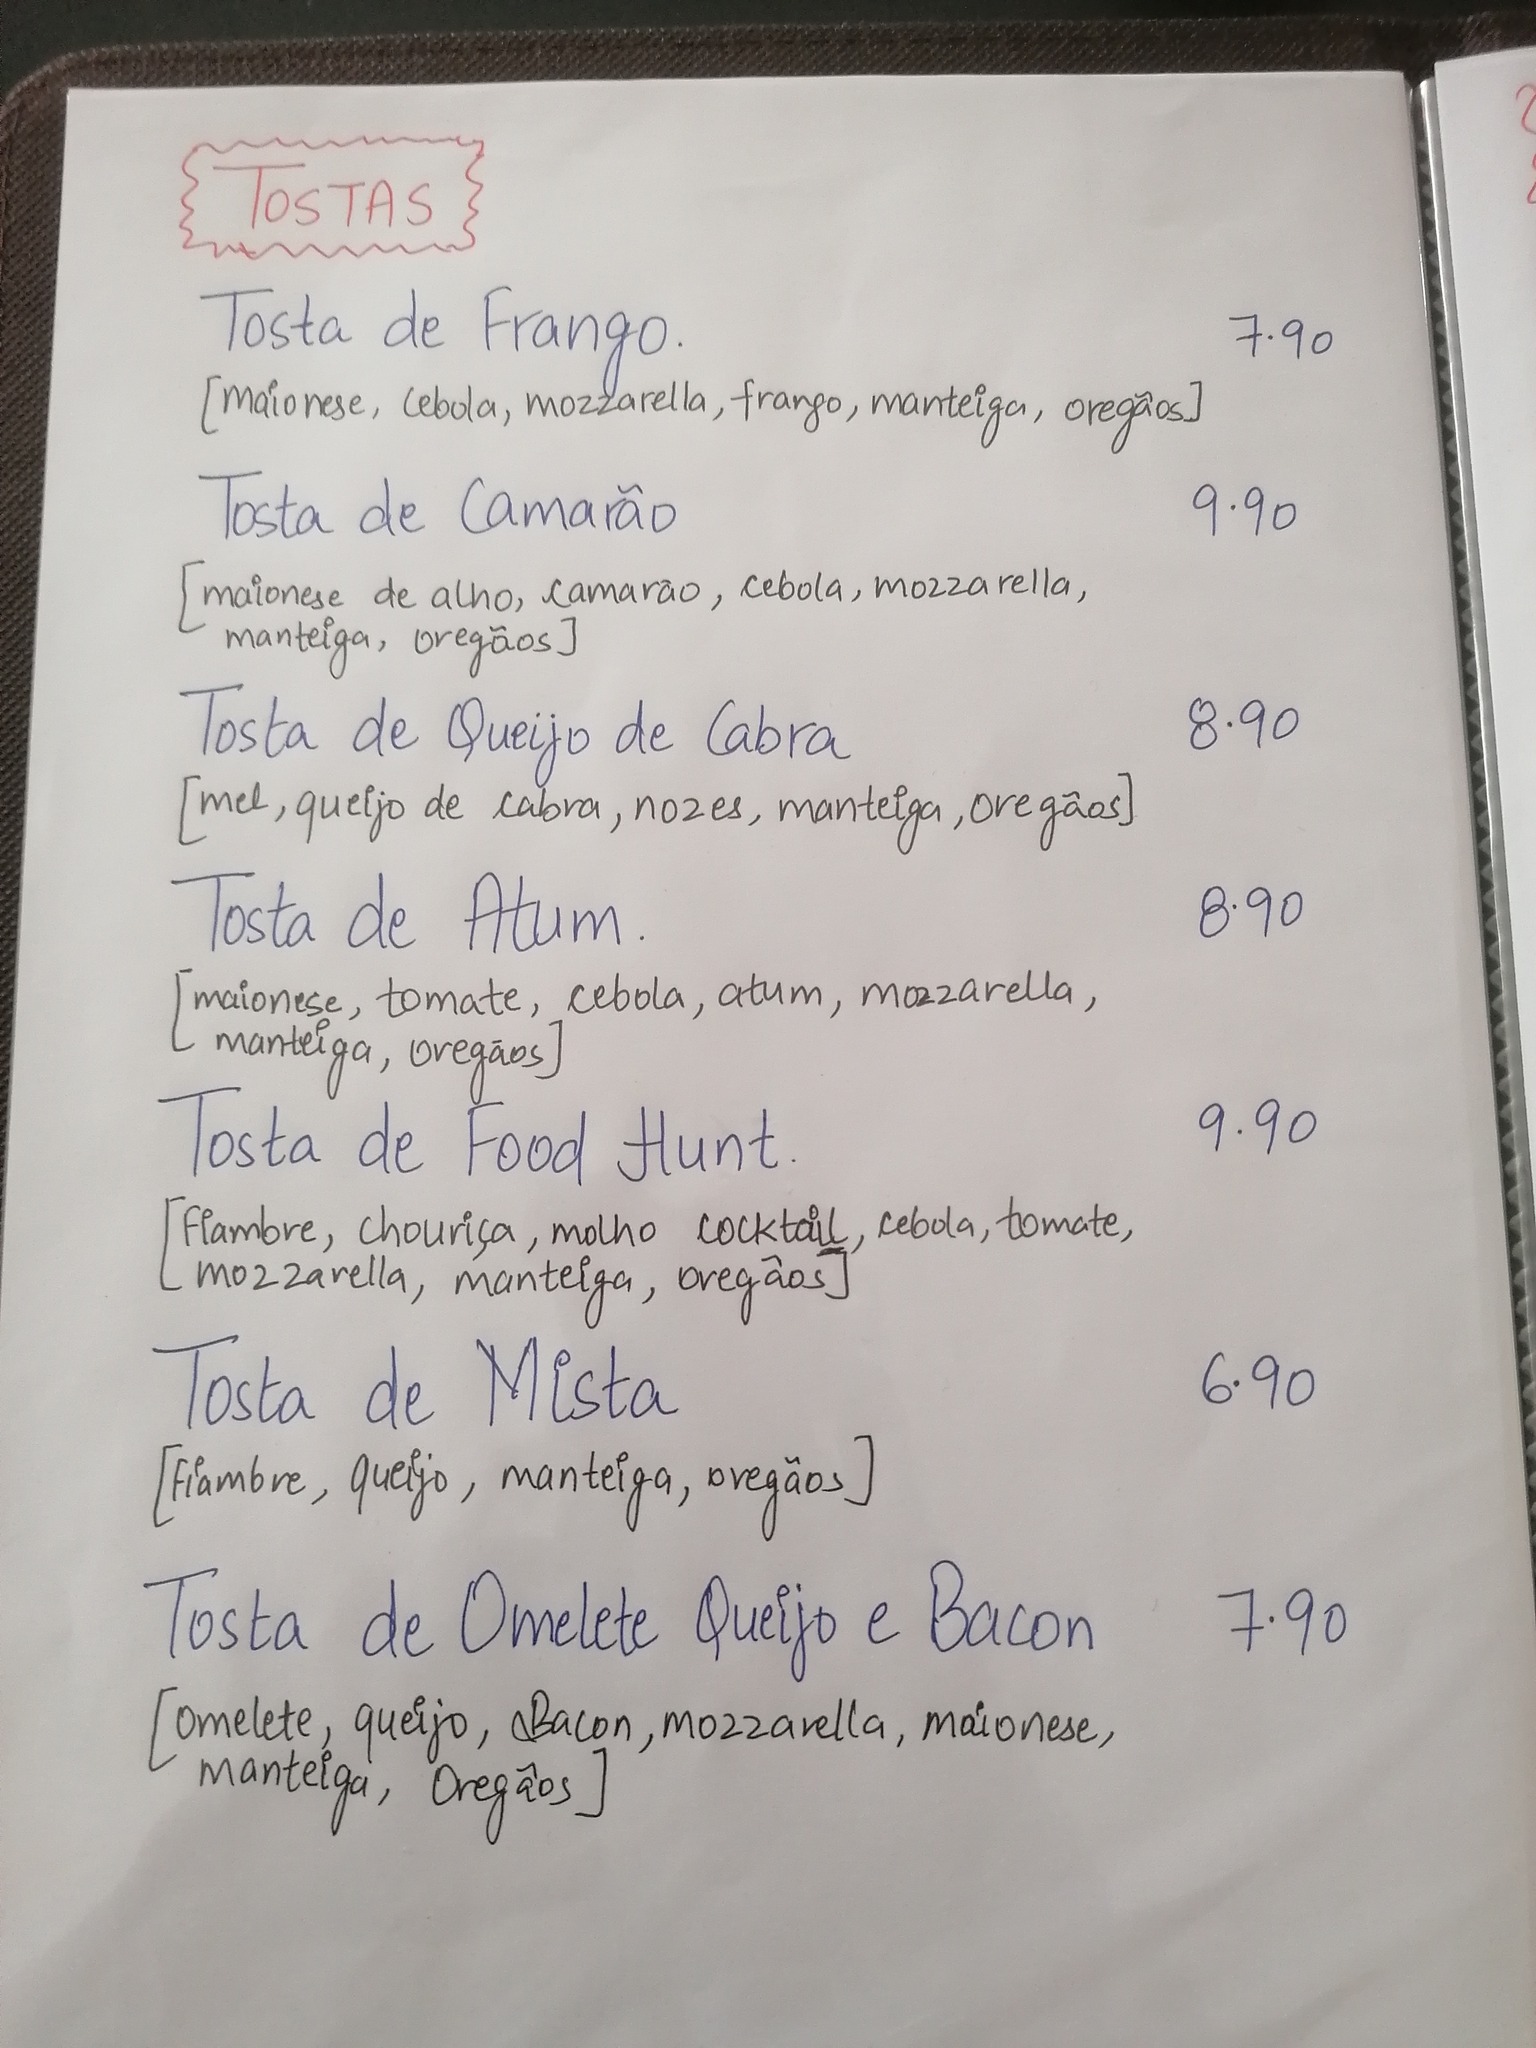 TOSTAS
Tosta de Frango. 7.90
[maionese, cebola, mozzarella, frango, manteiga, oregãos]
Tosta de Camarão 9.90
[maionese de alho, camarão, cebola, mozzarella,
manteiga, oregãos]
Tosta de Queijo de Cabra 8.90
[mel, queijo de cabra, nozes, manteiga, oregãos]
Tosta de Atum. 8.90
[maionese, tomate, cebola, atum, mozzarella,
manteiga, oregãos]
Tosta de Food Hunt. 9.90
[fiambre, chouriça, molho cocktail, cebola, tomate,
mozzarella, manteiga, oregãos]
Tosta de Mista 6.90
[fiambre, queijo, manteiga, oregãos]
Tosta de Omelete Queijo e Bacon 7.90
[omelete, queijo, Bacon, mozzarella, maionese,
manteiga, Oregãos]